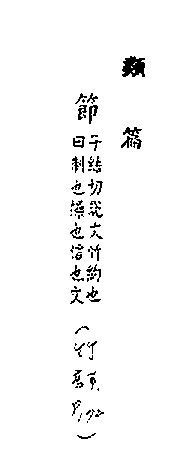 類篇
節
子結切說文竹約也
曰制也操也信也文
(竹部